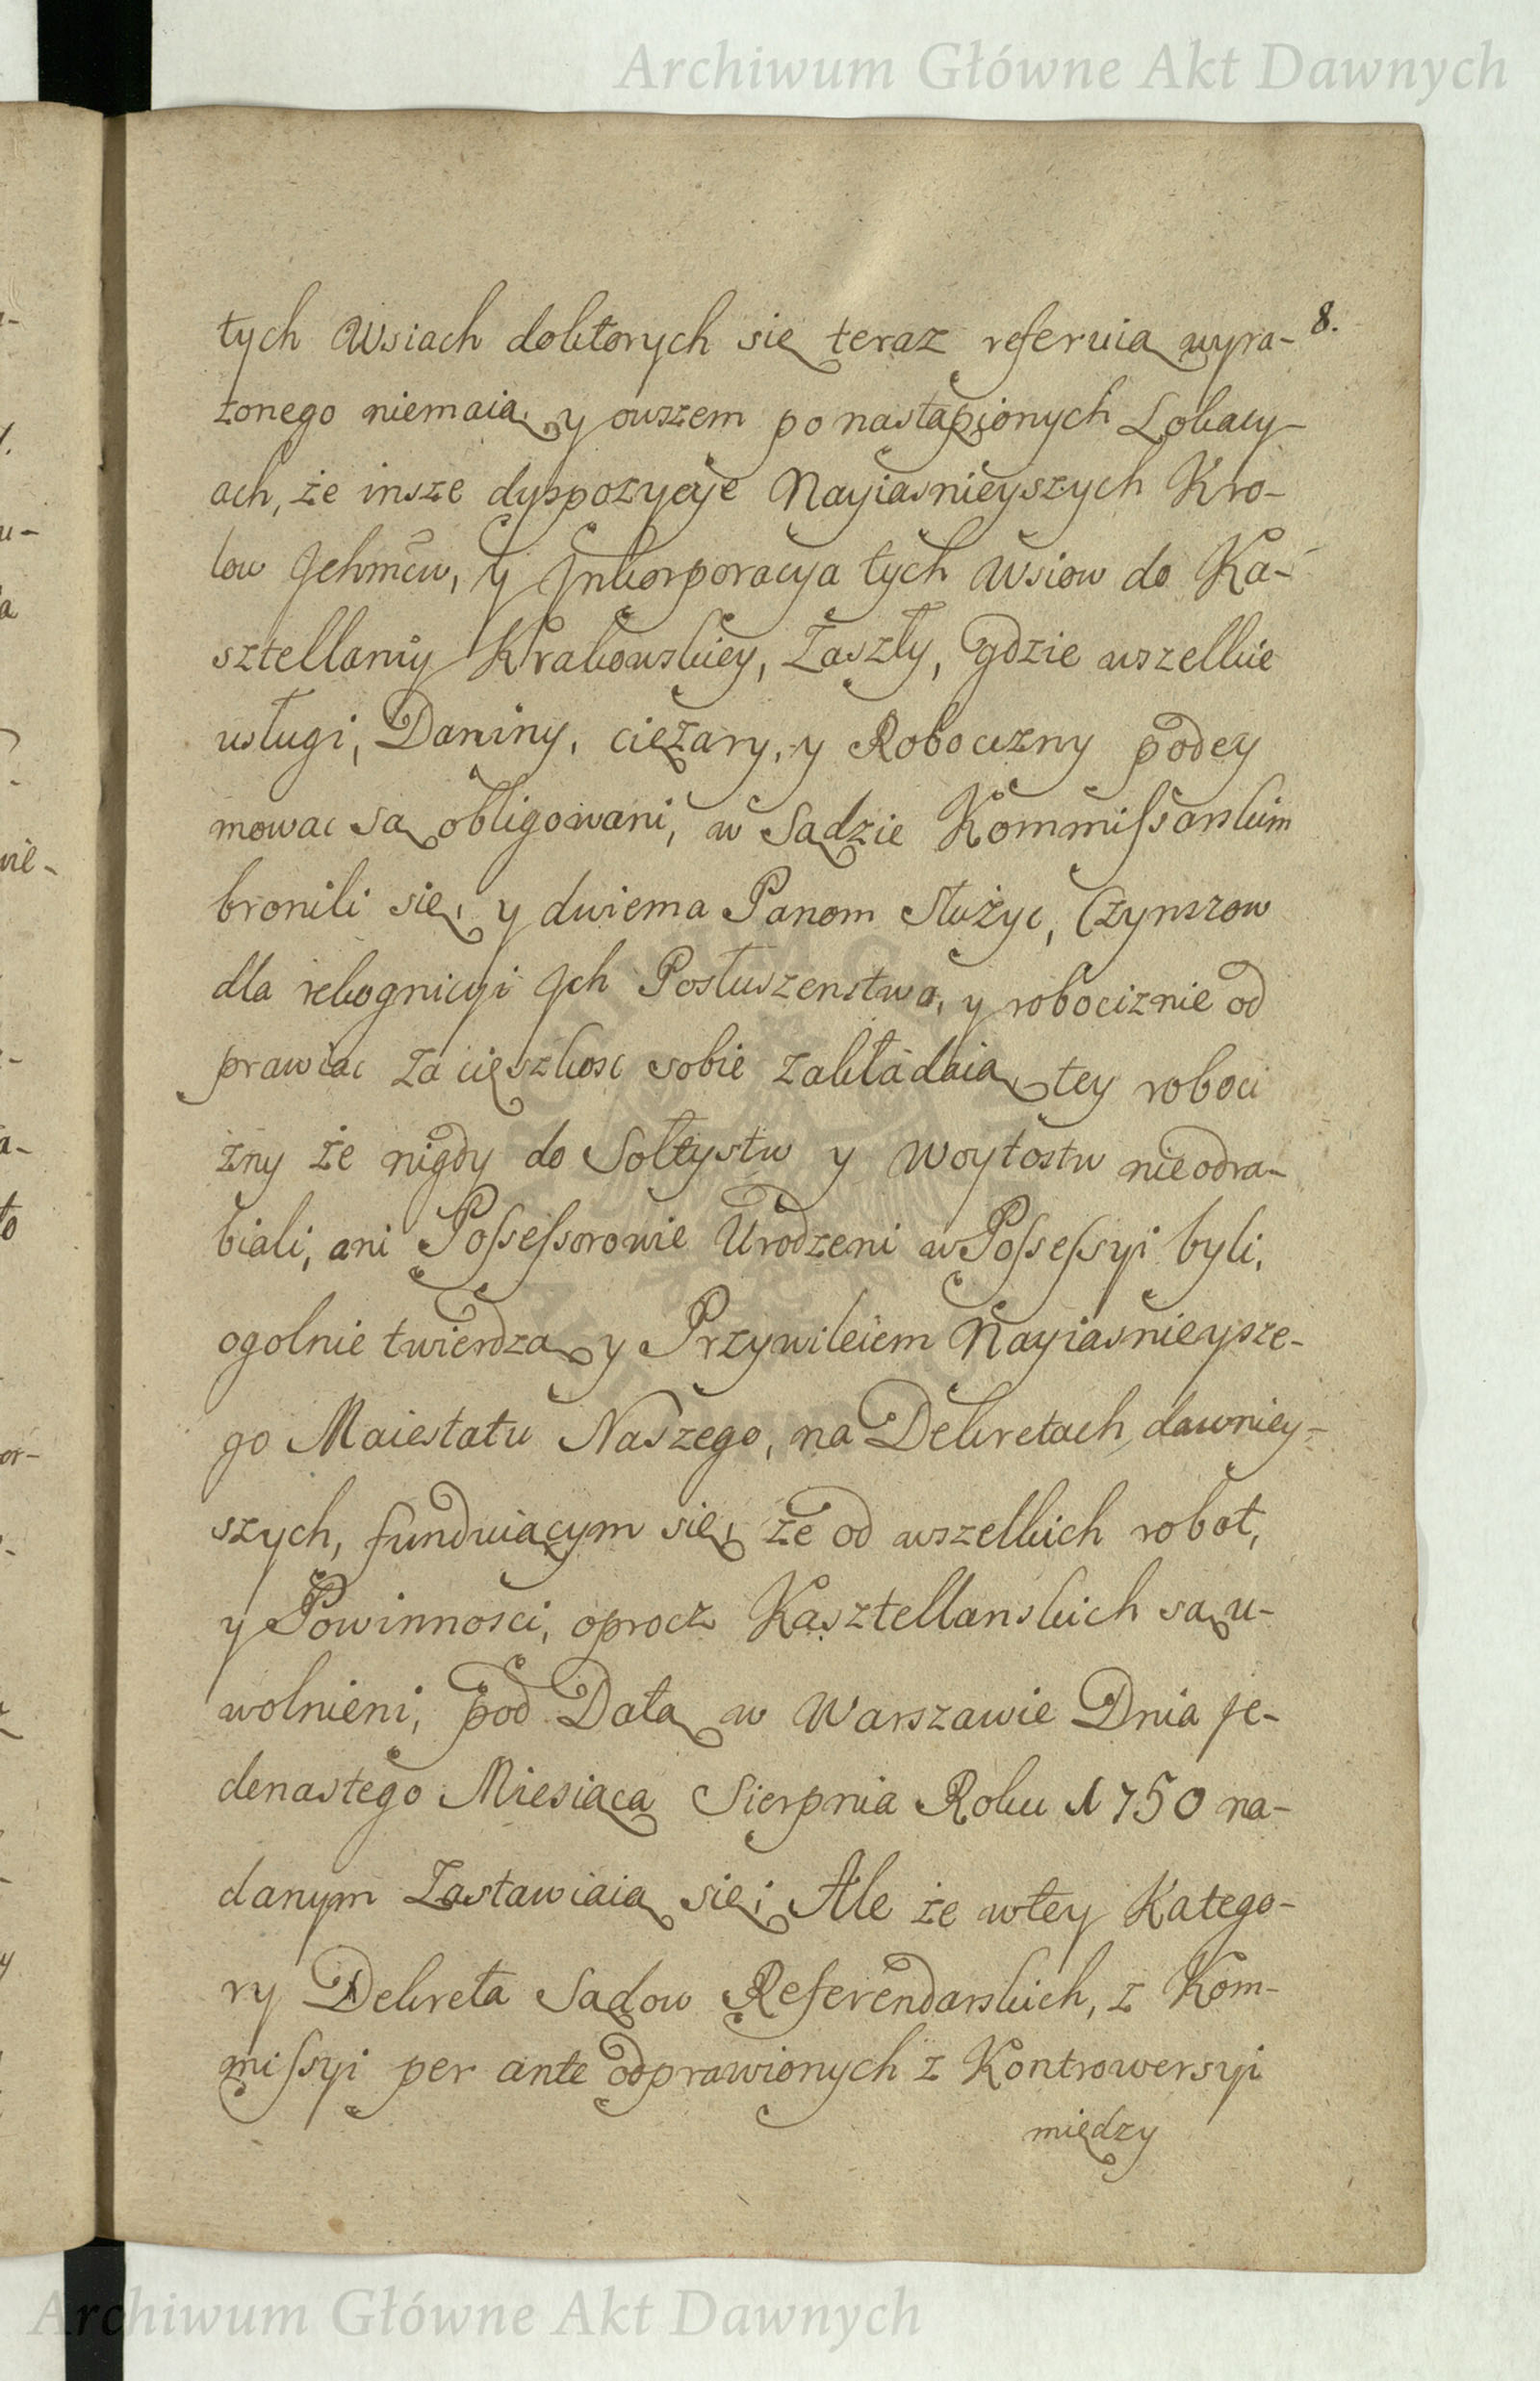 Archiwum Główne Akt Dawnych
8.
tych Wsiach doktorych się teraz referuią wyra-
żonego niemaią, y owszem po nastąpionych Lokacy-
ach, że insze dyspozycye Nayiasnieyszych Kro-
low Jchmćw, y Jnkorporacya tych Wsiow do Ka-
sztellanij Krakowskiey, Zaszły, gdzie wszelkie
usługi, Daniny, ciężary, y Robocizny podey
mowac są obligowani, w Sądzie Kommissarskim
bronili się, y dwiema Panom Służyc, Czynszow
dla rekognicyi Jch Posłuszenstwa, y robociznie od
prawiac za cięszkosc sobie zakładaią, tey roboci
zny że nigdy do Sołtystw y Woytostw nieodra-
biali, ani Possessorowie Urodzeni w Possessyi byli,
ogolnie twierdzą, y Przywileiem Nayiasnieysze-
go Maiestatu Naszego, na Dekretach dawniey-
szych, funduiącym się, że od wszelkich robot,
y Powinnosci, oprocz Kasztellanskich są u-
wolnieni, pod Datą w Warszawie Dnia Je-
denastego Miesiąca Sierpnia Roku 1750 na-
danym Zastawiaią się; Ale że wtey Katego-
ry Dekreta Sądow Referendarskich, z Kom-
missyi per ante odprawionych z Kontrowersyi
między
Archiwum Główne Akt Dawnych